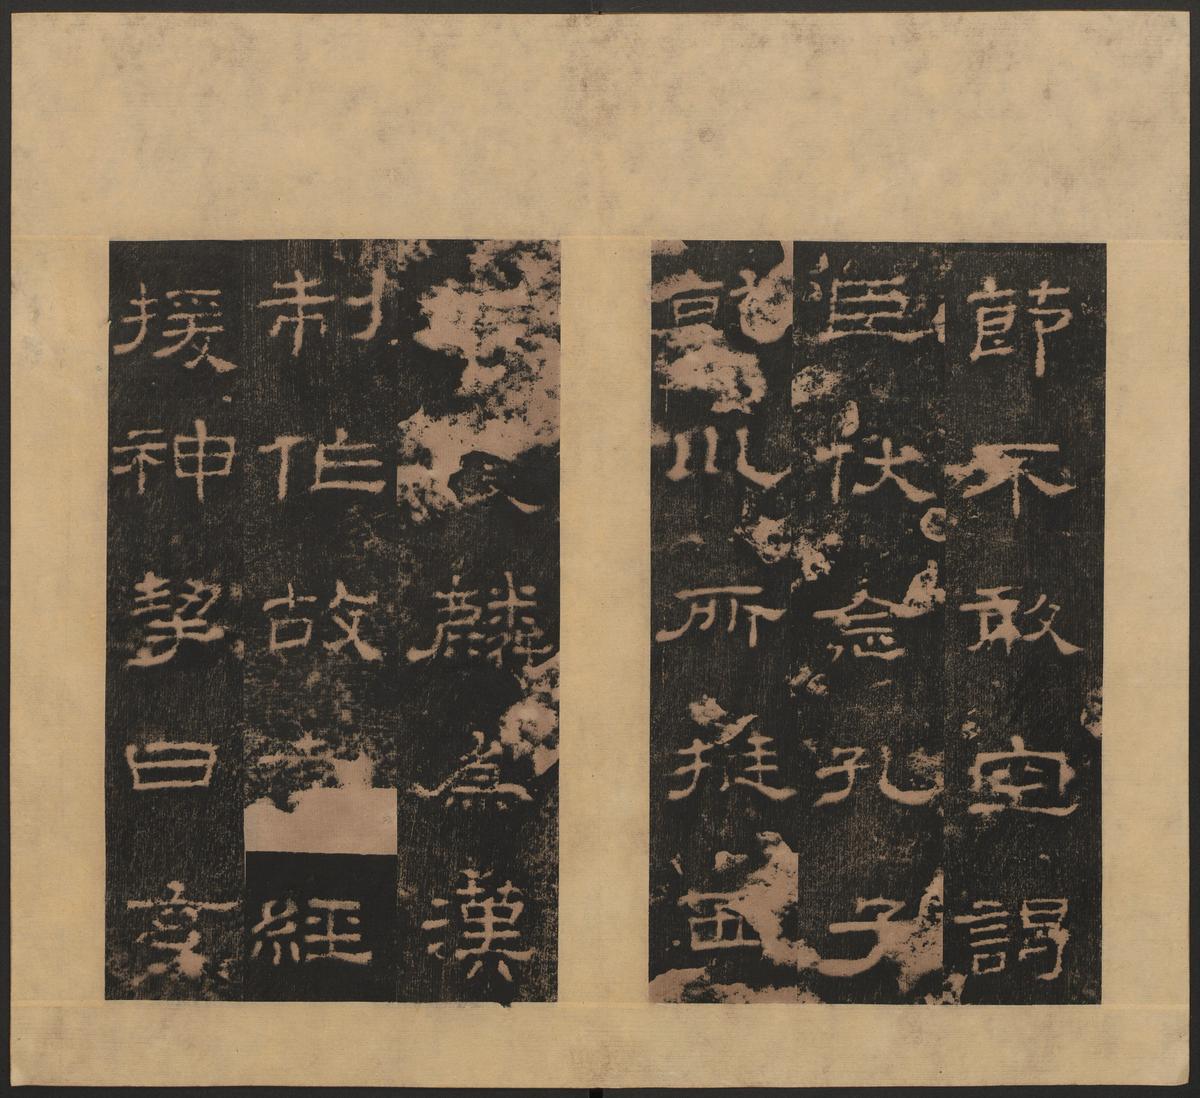 節不敢空謁
臣伏念孔子
乾川所挺西
麟為漢
制作故經
援神挈曰玄